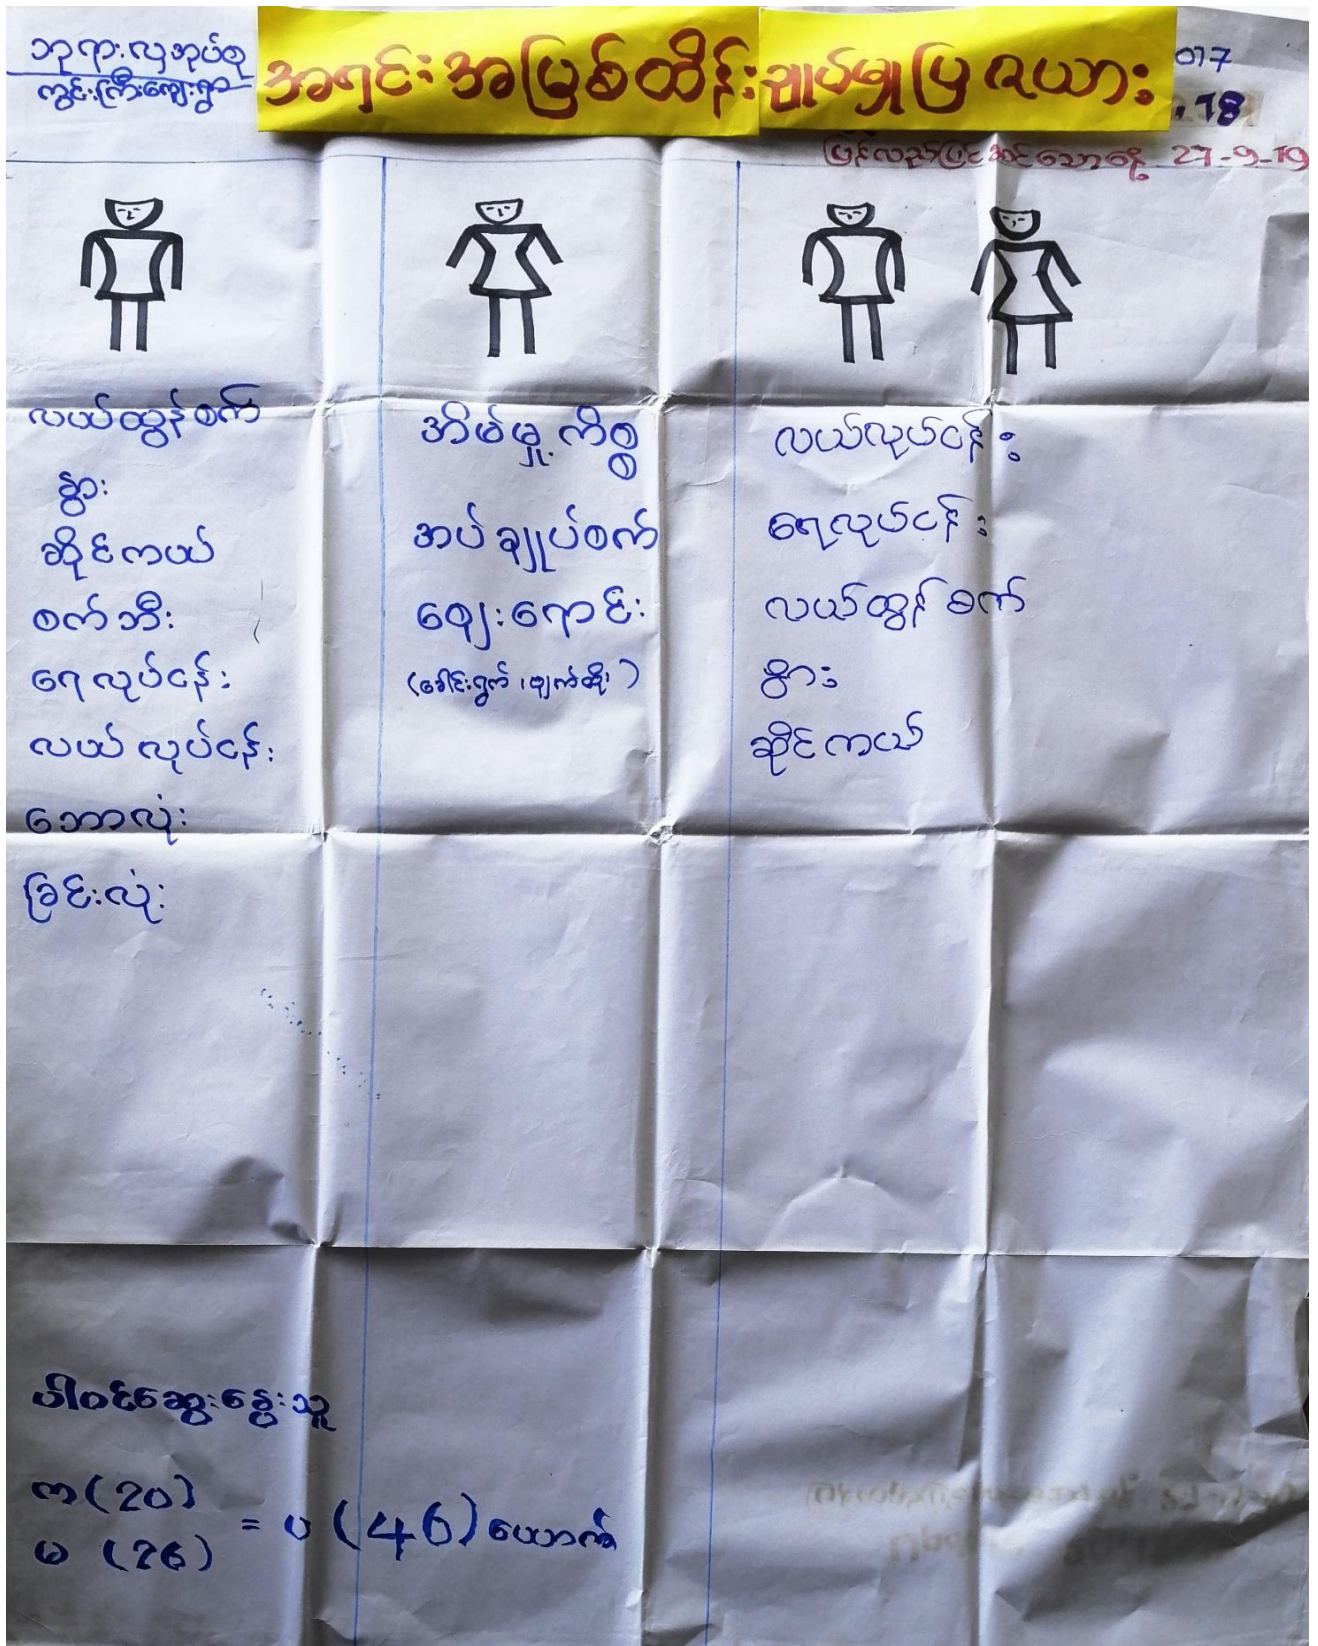 ဘုရားလှအုပ်စု
ကွင်းကြီးကျေးရွာ
အရင်းအမြစ်ထိန်းချုပ်မှုပြဇယား
017
.18
ပြန်လည်ပြင်ဆင်သောနေ့ 27-9-19
လယ်ထွန်စက်
နွား
ဆိုင်ကယ်
စက်ဘီး
ရေလုပ်ငန်း
လယ်လုပ်ငန်း
ဘောလုံး
ခြင်းလုံး
အိမ်မှု့ကိစ္စ
အပ်ချုပ်စက်
ဈေးရောင်း
(ခေါင်းရွက်၊ ဖျက်ဆိုး)
လယ်လုပ်ငန်း
ရေလုပ်ငန်း
လယ်ထွန်စက်
နွား
ဆိုင်ကယ်
ပါဝင်ဆွေးနွေးသူ
က (20)
မ (26)
= ပ (46) ယောက်